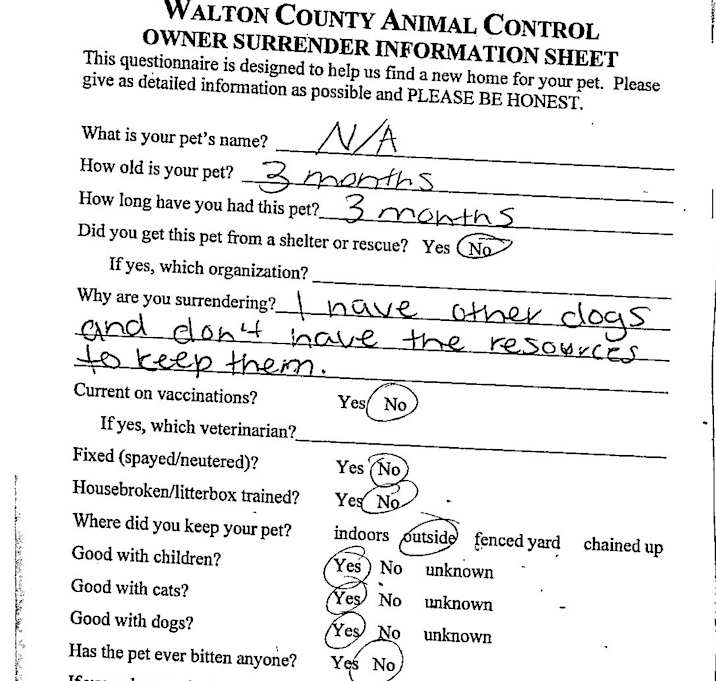 WALTON COUNTY ANIMAL CONTROL
OWNER SURRENDER INFORMATION SHEET
This questionnaire is designed to help us find a new home for your pet. Please
give as detailed information as possible and PLEASE BE HONEST.
What is your pet's name? N/A
How old is your pet? 3 months
How long have you had this pet? 3 months
Did you get this pet from a shelter or rescue? Yes No
If yes, which organization?
Why are you surrendering? I have other dogs
and don't have the resources
to keep them.
Current on vaccinations? Yes No
If yes, which veterinarian?
Fixed (spayed/neutered)? Yes No
Housebroken/litterbox trained? Yes No
Where did you keep your pet? indoors outside fenced yard chained up
Good with children? Yes No unknown
Good with cats? Yes No unknown
Good with dogs? Yes No unknown
Has the pet ever bitten anyone? Yes No